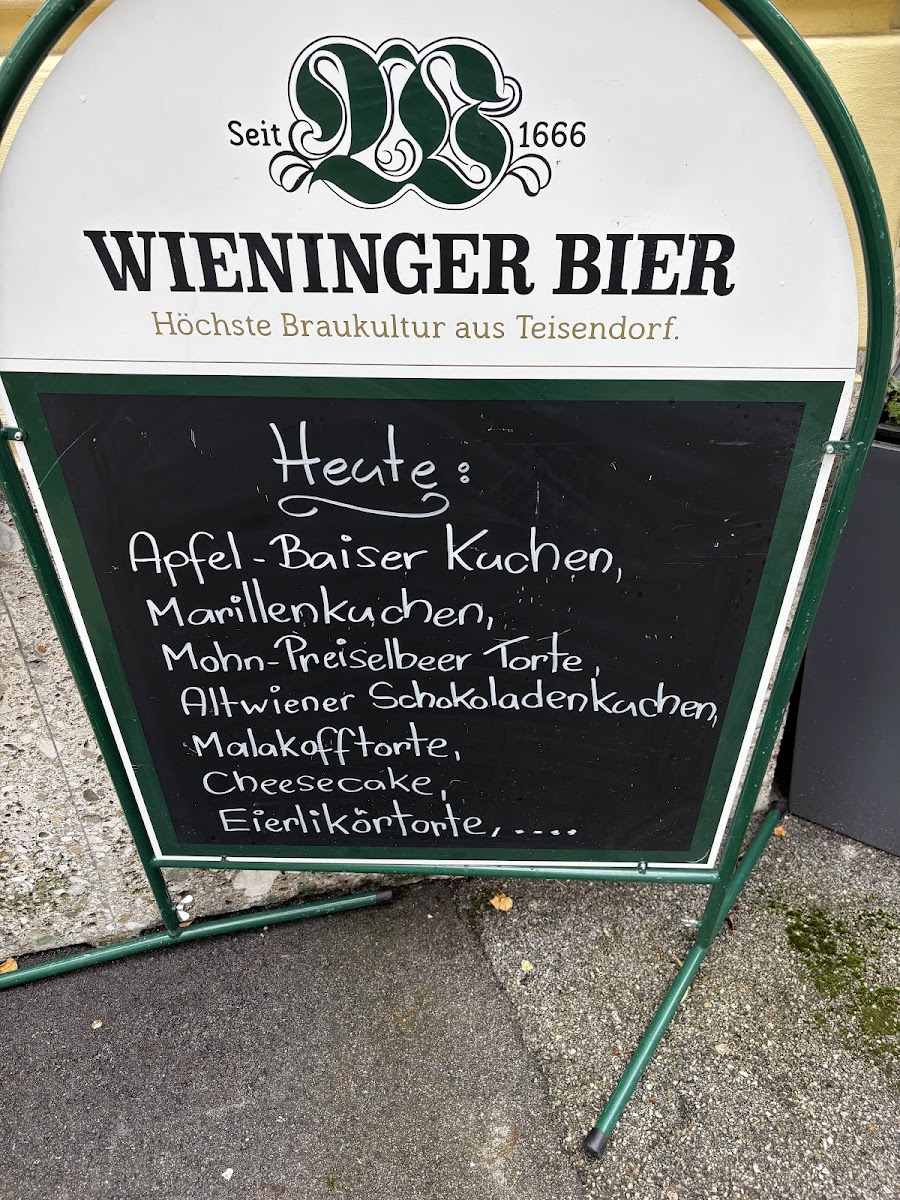 Seit WB 1666
WIENINGER BIER
Höchste Braukultur aus Teisendorf.
Heute:
Apfel-Baiser Kuchen,
Marillenkuchen,
Mohn-Preiselbeer Torte,
Altwiener Schokoladenkuchen,
Malakofftorte,
Cheesecake,
Eierlikörtorte, ....